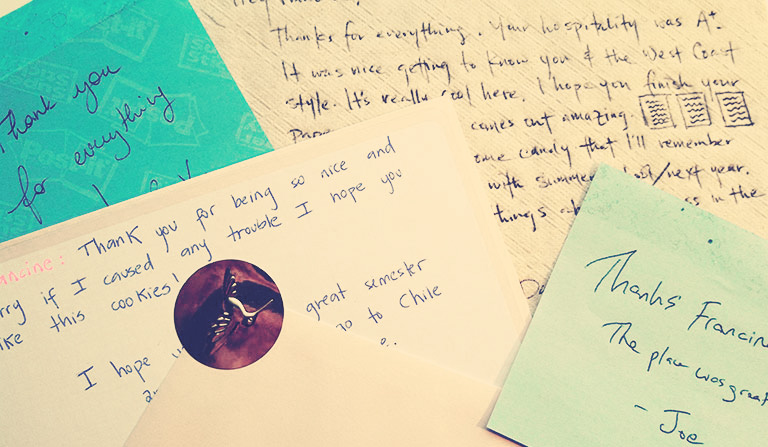 Thank you
for everything
Thanks for everything. Your hospitality was A+.
It was nice getting to know you & the West Coast
style. It's really cool here. I hope you finish your
comes out amazing.
some candy that I'll remember
with summer /next year.
things in the
ancine: Thank you for being so nice and
rry if I caused any trouble I hope you
ike this cookies!
great semester
I hope
to Chile
Thanks Francine
The place was great
- Joe